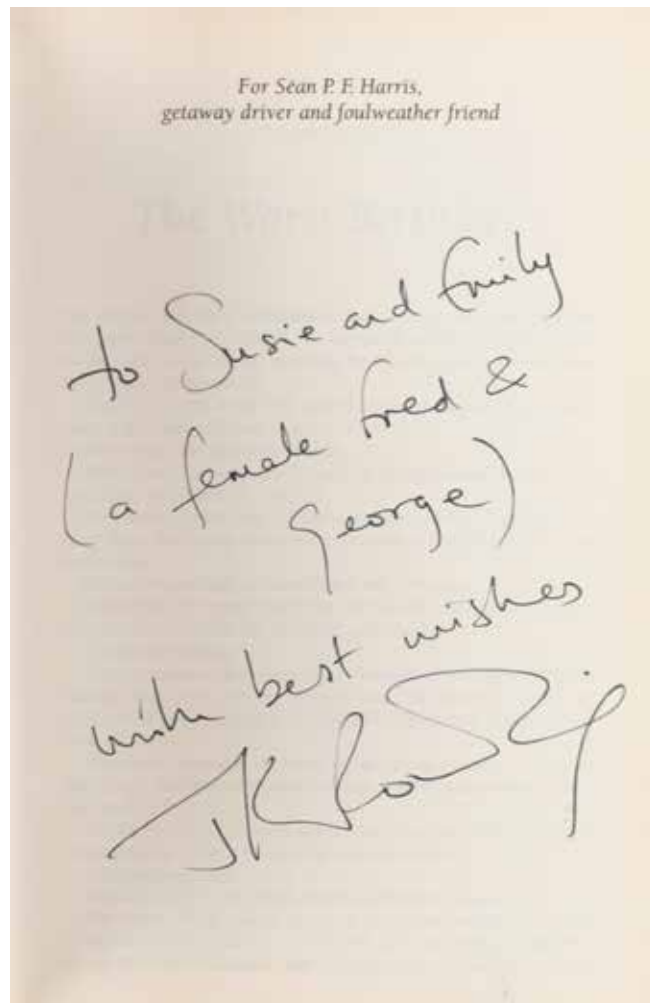 For Séan P. F. Harris,
getaway driver and foulweather friend
The Worst Birthday
to Susie and Emily
(a female Fred &
George)
with best wishes
JK Rowling